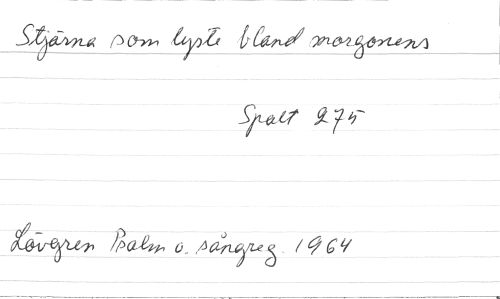 Stjärna som lyste bland morgonens
Spalt 275
Lövgren Psalm o. sångreg. 1964